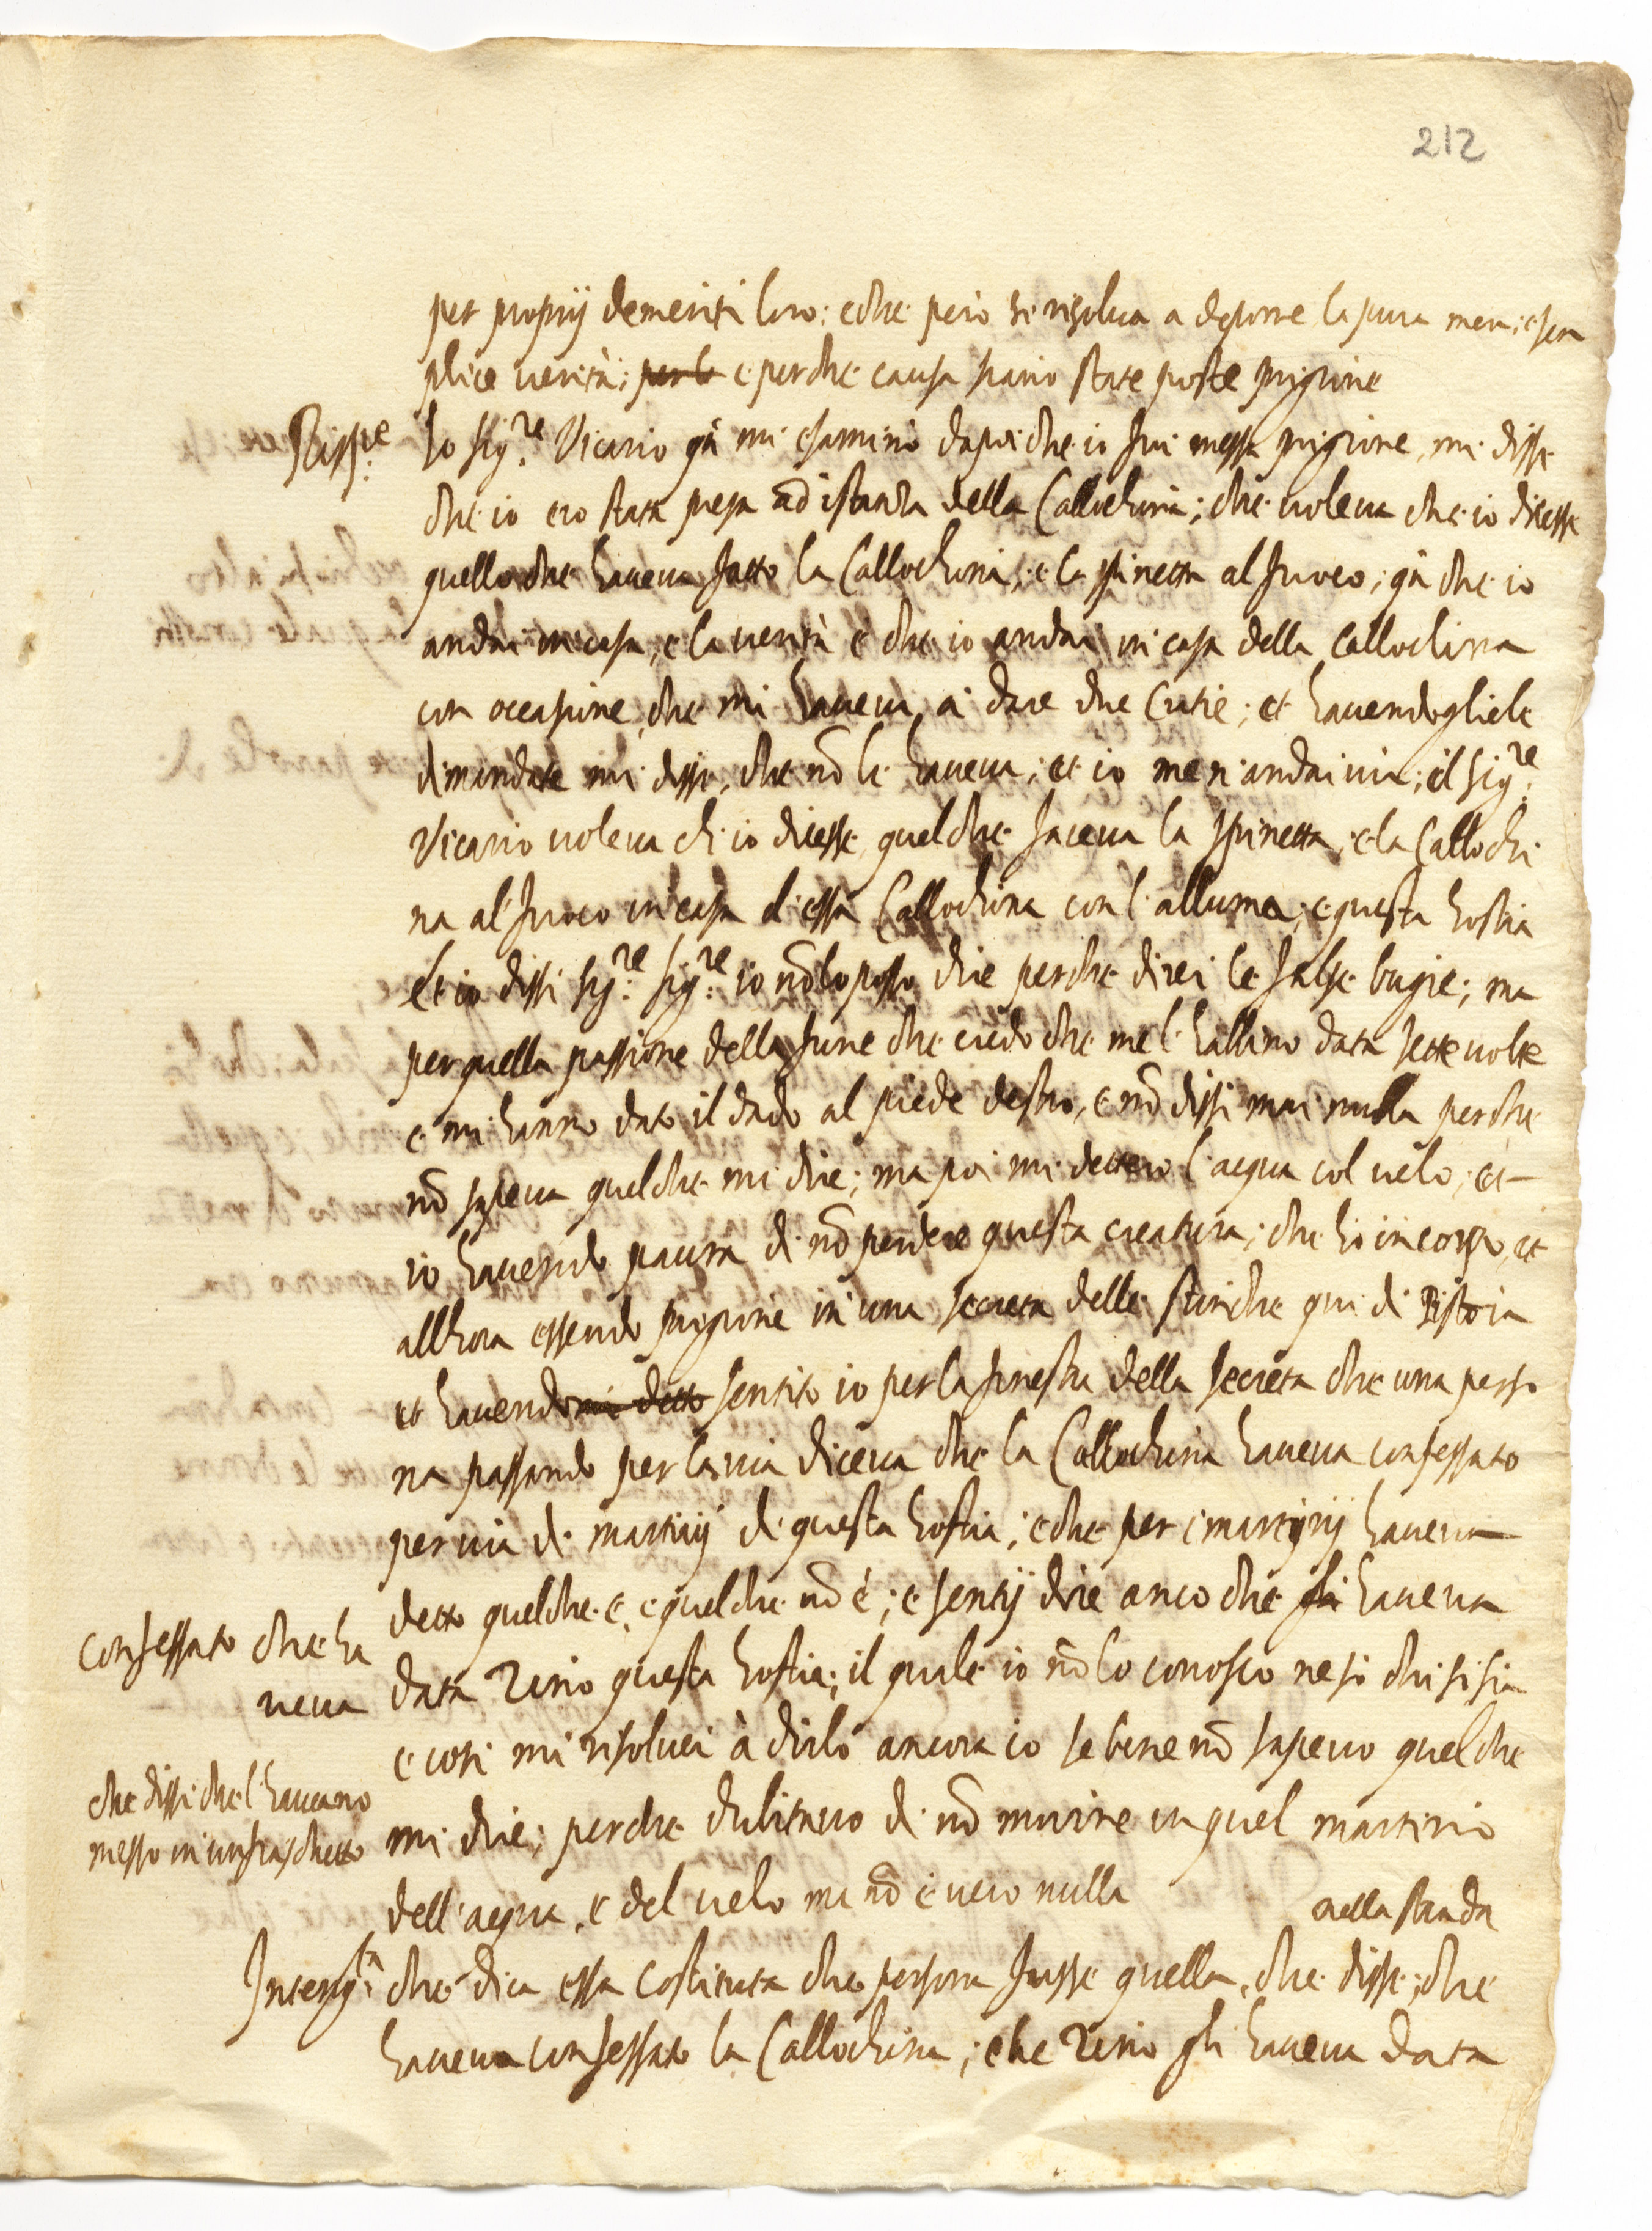 212
per proprij demeriti loro: e che però si risolva a deporre la pura mera, e sem
plice verità; per le e perche causa siano state poste prigione
Rispse
Io sigre Vicario già mi esaminò dapoi che io fui messa prigione, mi disse
che io ero stata presa ad istanza della Callochina; che voleva che io dicesse
quello che haveva fatto la Callochina, e la spinetta al fuoco; già che io
andai in casa, e la verità è che io andai in casa della Callochina
con occasione, che mi haveva, a dare due Crazie; et havendogliele
dimandate mi disse, che nō le haveva; et io me n'andai via; il sigre
Vicario voleva ch'io dicesse, quel che faceva la spinetta, e la Callochi
na al fuoco in casa d'essa Callochina con l'alluma, e questa hostia
et io dissi sigre sigre io nō lo posso dire perche direi le false bugie; ma
per quella passione della fune che credo che me l'habbino data sette volte
e mi hanno dato il dado al piede destro, e nō dissi mai nulla perche
nō sapeva quel che mi dire; ma poi mi dettero l'acqua col velo, et
io havendo paura di nō perdere questa creatura; che hò in corpo, et
allhora essendo prigione in una secreta delle stinche qui di Pistoia
et havendomi detto sentito io per la finestra della secreta che una perso
na passando per la via diceva che la Callochina haveva confessato
per via di martirij di questa hostia; e che per i martirij haveva
detto quel che è, e quel che nō è; e sentij dire anco che gli haveva
confessato che ha
veva
data Zeno questa hostia; il quale io nō lo conosco ne so chi si sia
e cosi mi risolvei à dirlo ancora io se bene nō sapevo quel che
che dissi che l'havevano
messo in un fiaschetto
mi dire; perche dubitavo di nō morire in quel martirio
dell'acqua, e del velo ma nō è vero nulla
nella stanza
Interrogta che dica essa Costituta che persona fusse quella, che disse; che
haveva confessato la Callochina; e che Zeno gli haveva data